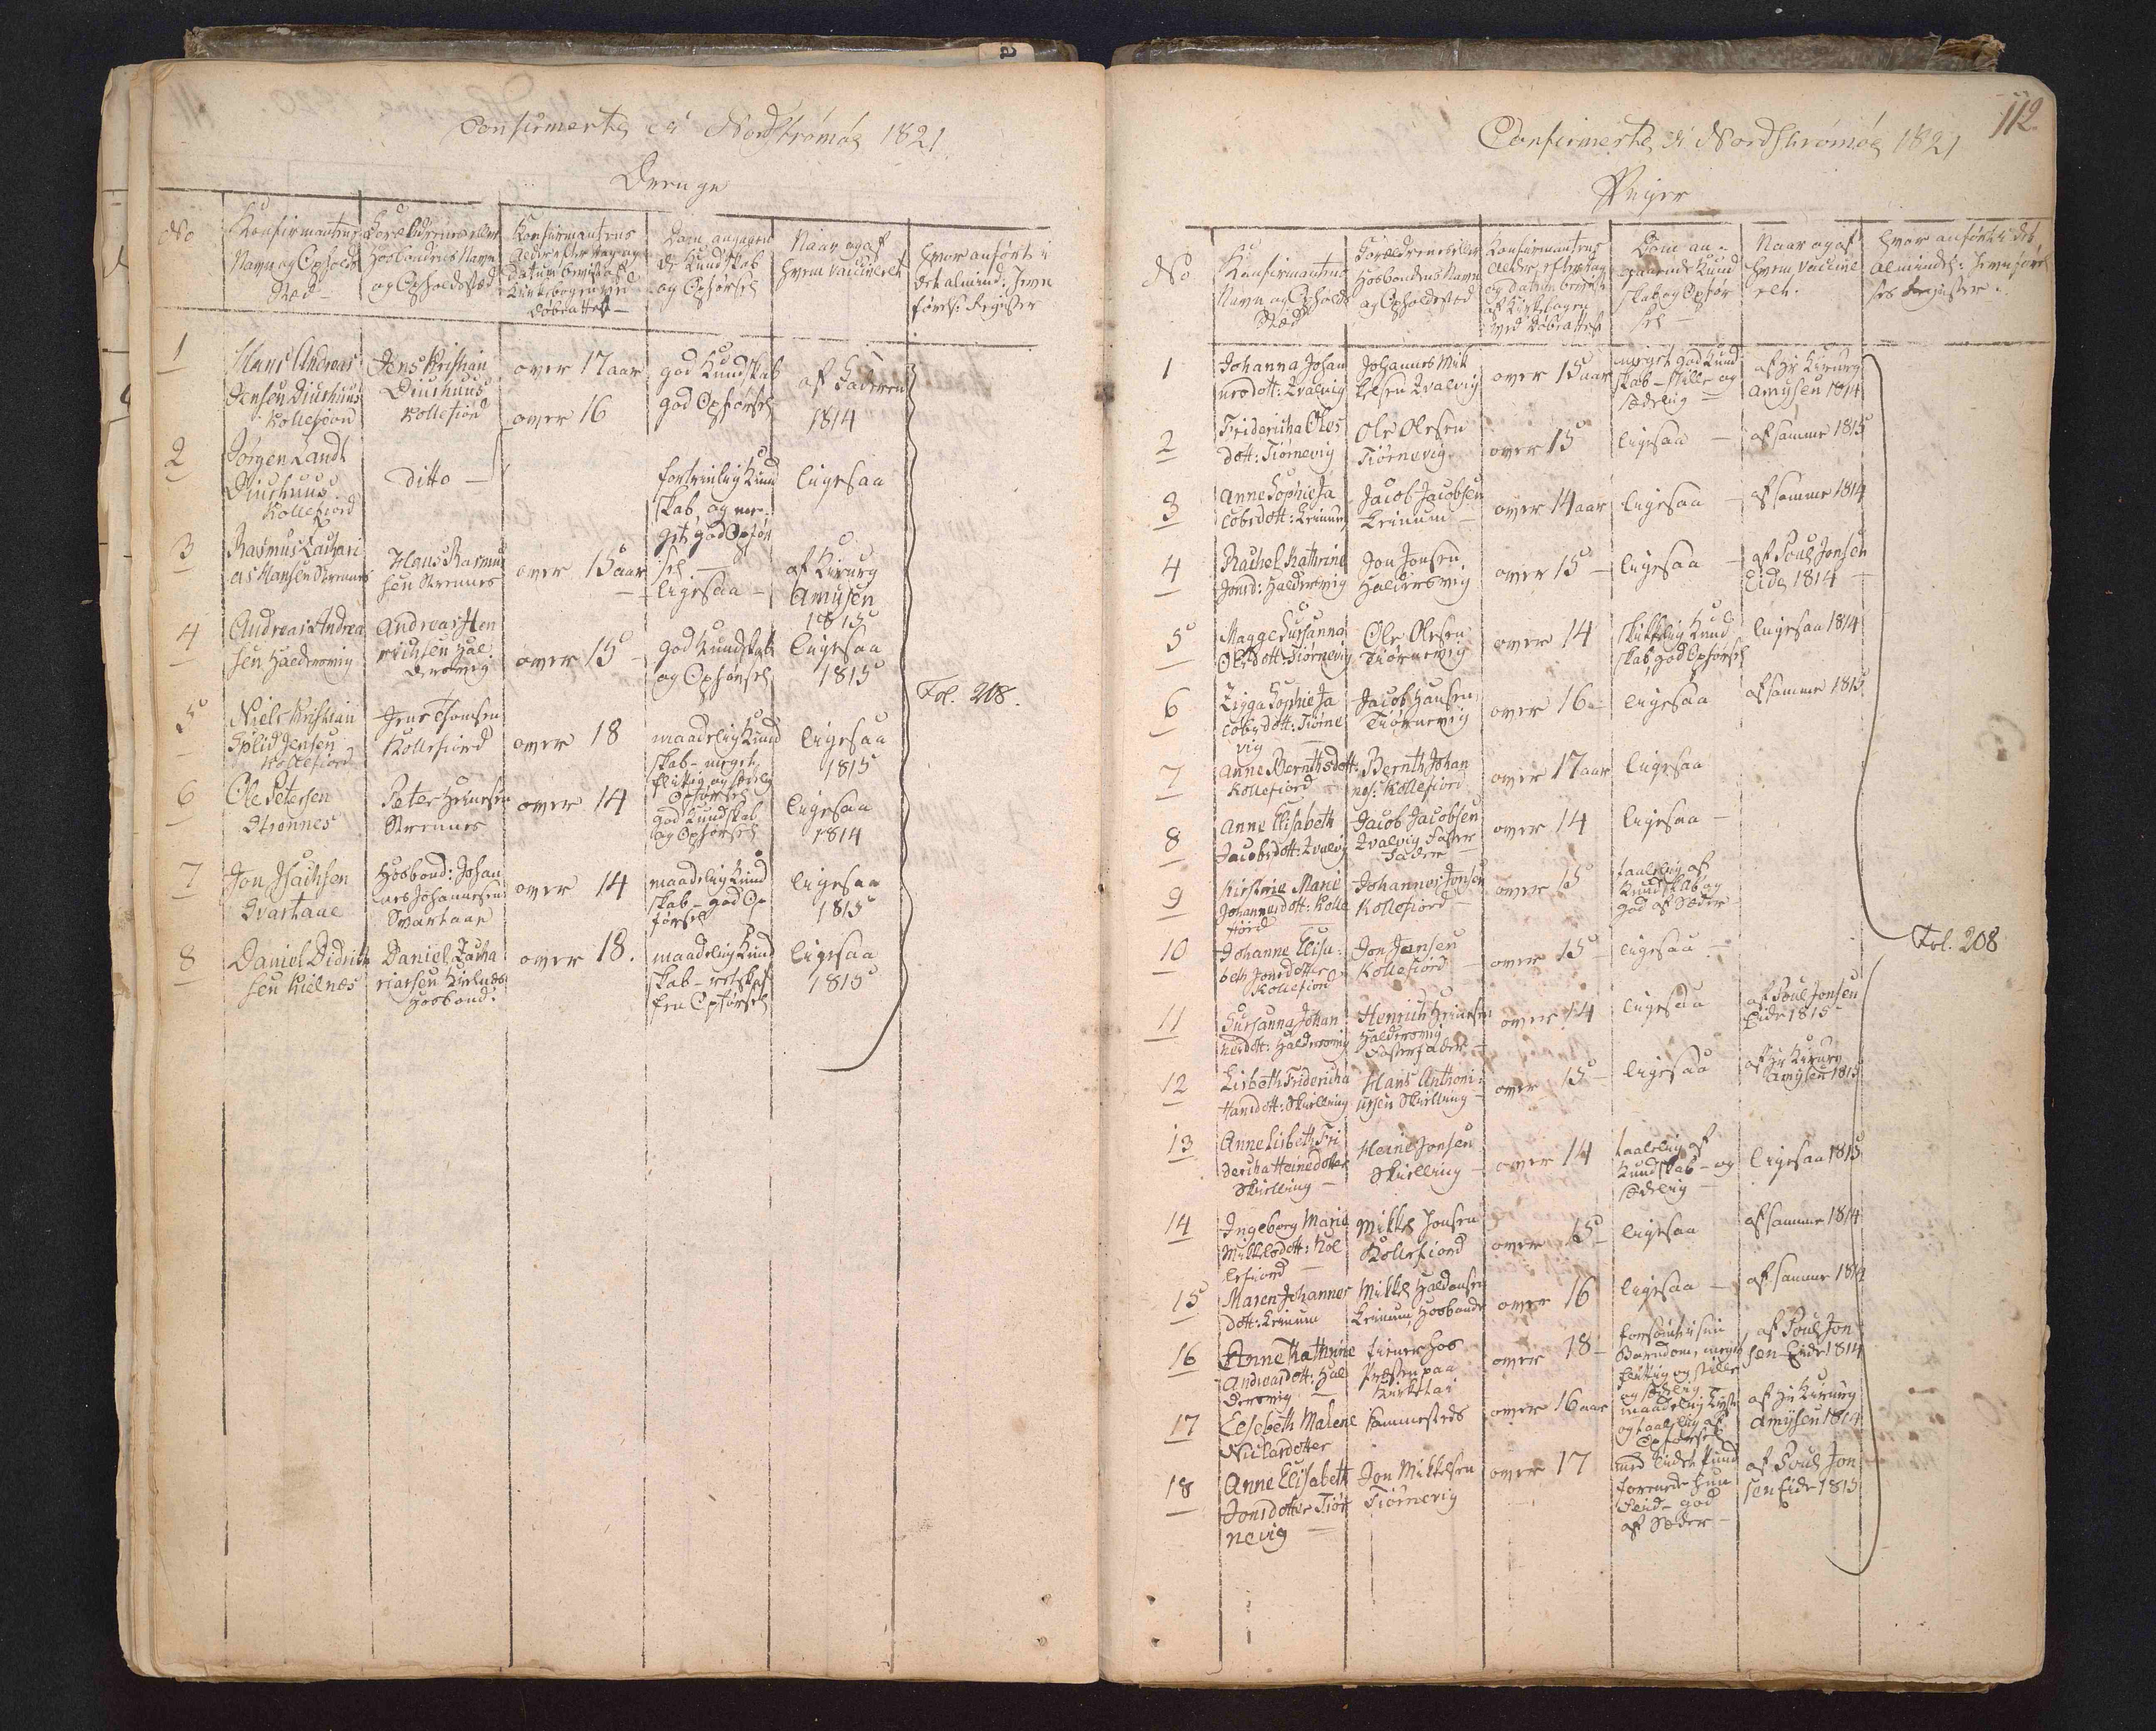 Confirmerte i Nordstrømøe 1821
Drenge
No
Konfirmantens
Navn og Opholds
Sted
Forældrenes eller
Hosbondens Navn
og Opholdsted
Konfirmantens
Alder efter Dag og
Datum beviist af
Kirkebogen ved
Døbeattest
Dom angaaen
de Kundskab
og Opførsel
Naar og af
hvem vaccineret
Hvor anført i
det almind: Jevn
førels: Register
1
Hans Andreas
Jensen Diurhuus
Kollefiord
Jens Kristian
Diurhuus
Kollefiord
over 17 aar
god Kundskab
god Opførsel
af Faderen
1814
2
Jørgen Landt
Diurhuus
Kollefiord
ditto
over 16
fortrinlig Kund
skab, og me-
get god Opfør
sel
ligesaa
3
Rasmus Zachari
as Hansen Strennes
Hans Rasmus
sen Strennes
over 15 aar
ligesaa
af Kirurg
Amysen
1815
4
Andreas Andrea
sen Haldersvig
Andreas Hen
richsen Hal
dersvig
over 15
god Kundskab
og Opførsel
ligesaa
1815
5
Niels Kristian
Split Jensen
Kollefiord
Jens Thomsen
Kollefiord
over 18
maadelig Kund
skab - meget
flittig og sædelig
Opførsel
ligesaa
1815
Fol. 208.
6
Ole Petersen
Strennes
Peter Heinesen
Strennes
over 14
god Kundskab
og Opførsel
ligesaa
1814
7
Jon Isachsen
Svartaae
Hosbond: Johan
nes Johannesen
Svartaae
over 14
maadelig Kund
skab - god Op
førsel
ligesaa
1815
8
Daniel Didrik
sen Kielnes
Daniel Zacha
riasen Kielnes
Hosbond.
over 18.
maadelig Kund
skab - retskaf
fen Opførsel
ligesaa
1815
112
Confirmerte i Nordstrømøe 1821
Piger
No
Konfirmantens
Navn og Opholds
Sted
Forældrenes eller
Hosbondens Navn
og Opholdsted
Konfirmantens
Alder, efter Dag
og Datum beviist
af Kirkebogen
ved Døbeattest
Dom an-
gaaende Kund
skab og Opfør
sel
Naar og af
hvem Vaccine
ret.
Hvor anført i det
Almindel: Jevnføre
ses Register.
1
Johanna Johan
nesdott: Qvalvig
Johannes Mik
kelsen Qvalvig
over 15 aar
meget god Kund
skab - stille og
sædelig
af Hr Kirurg
Amysen 1814
2
Fridericha Oles
dott: Tiørnevig
Ole Olesen
Tiørnevig
over 15
ligesaa
af samme 1815
3
Anne Sophie Ja
cobsdott: Leinum
Jacob Jacobsen
Leinum
over 14 aar
ligesaa
af samme 1814
4
Rachel Kathrine
Jonsd: Haldersvig
Jon Jonsen
Haldersvig
over 15
ligesaa
af Poul Jonsen
Eide 1814
5
Magge Sussanna
Olesdott: Tiørnevig
Ole Olesen
Tiørnevig
over 14
skikkelig Kund
skab, god Opførsel
ligesaa 1814
6
Zigga Sophie Ja
cobsdott: Tiørne
vig
Jacob Hansen
Tiørnevig
over 16
ligesaa
af samme 1815
7
Anne Bernthsdott:
Kollefiord
Bernth Johan
nes: Kollefiord
over 17 aar
ligesaa
8
Anne Elisabeth
Jacobsdott: Qvalvig
Jacob Jacobsen
Qvalvig Foster
fader
over 14
ligesaa
9
Kirstine Marie
Johannesdott: Kolle
fiord
Johannes Jonsen
Kollefiord
over 15
taalelig af
Kundskab og
god af Sæder
10
Johanne Elisa-
beth Jonsdotter
Kollefiord
Jon Jensen
Kollefiord
over 15
ligesaa
Fol. 208
11
Sussanna Johan
nesdott: Haldersvig
Henrich Heinesen
Haldersvig
Fosterfader
over 14
ligesaa
af Poul Jonsen
Eide 1815
12
Lisbeth Fridericha
Hansdott: Skielling
Hans Anthoni-
usen Skielling
over 15
ligesaa
af Hr Kirurg
Amysen 1815
13
Anne Lisbeth Fri
dericha Heinedotter
Skielling
Heine Jonsen
Skielling
over 14
taalelig af
Kundskab - og
sædelig
ligesaa 1815
14
Ingeborg Marie
Mikkelsdott: Kol
lefiord
Mikkel Jonsen
Kollefiord
over 15
ligesaa
af samme 1814
15
Maren Johannes
dott: Leinum
Mikkel Haldansen
Leinum, Hosbonde
over 16
ligesaa
af samme 1814
16
Anne Kathrine
Andreasdott: Hal
dersvig
tiener hos
Præsten paa
over 18
forsømt i sin
Barndom, meget
flittig og stille
og sædelig
af Poul Jon
sen Eide 1814
17
Elsebeth Malene
Niclasdotter
sammesteds
over 16 aar
maadelig
og taalelig af
Opførsel
af Hr Kirurg
Amysen 1814
18
Anne Elisabeth
Jonsdotter Tiør
nevig
Jon Mikkelsen
Tiørnevig
over 17
med liden Kund
god
af Sæder
af Poul Jon
sen Eide 1815